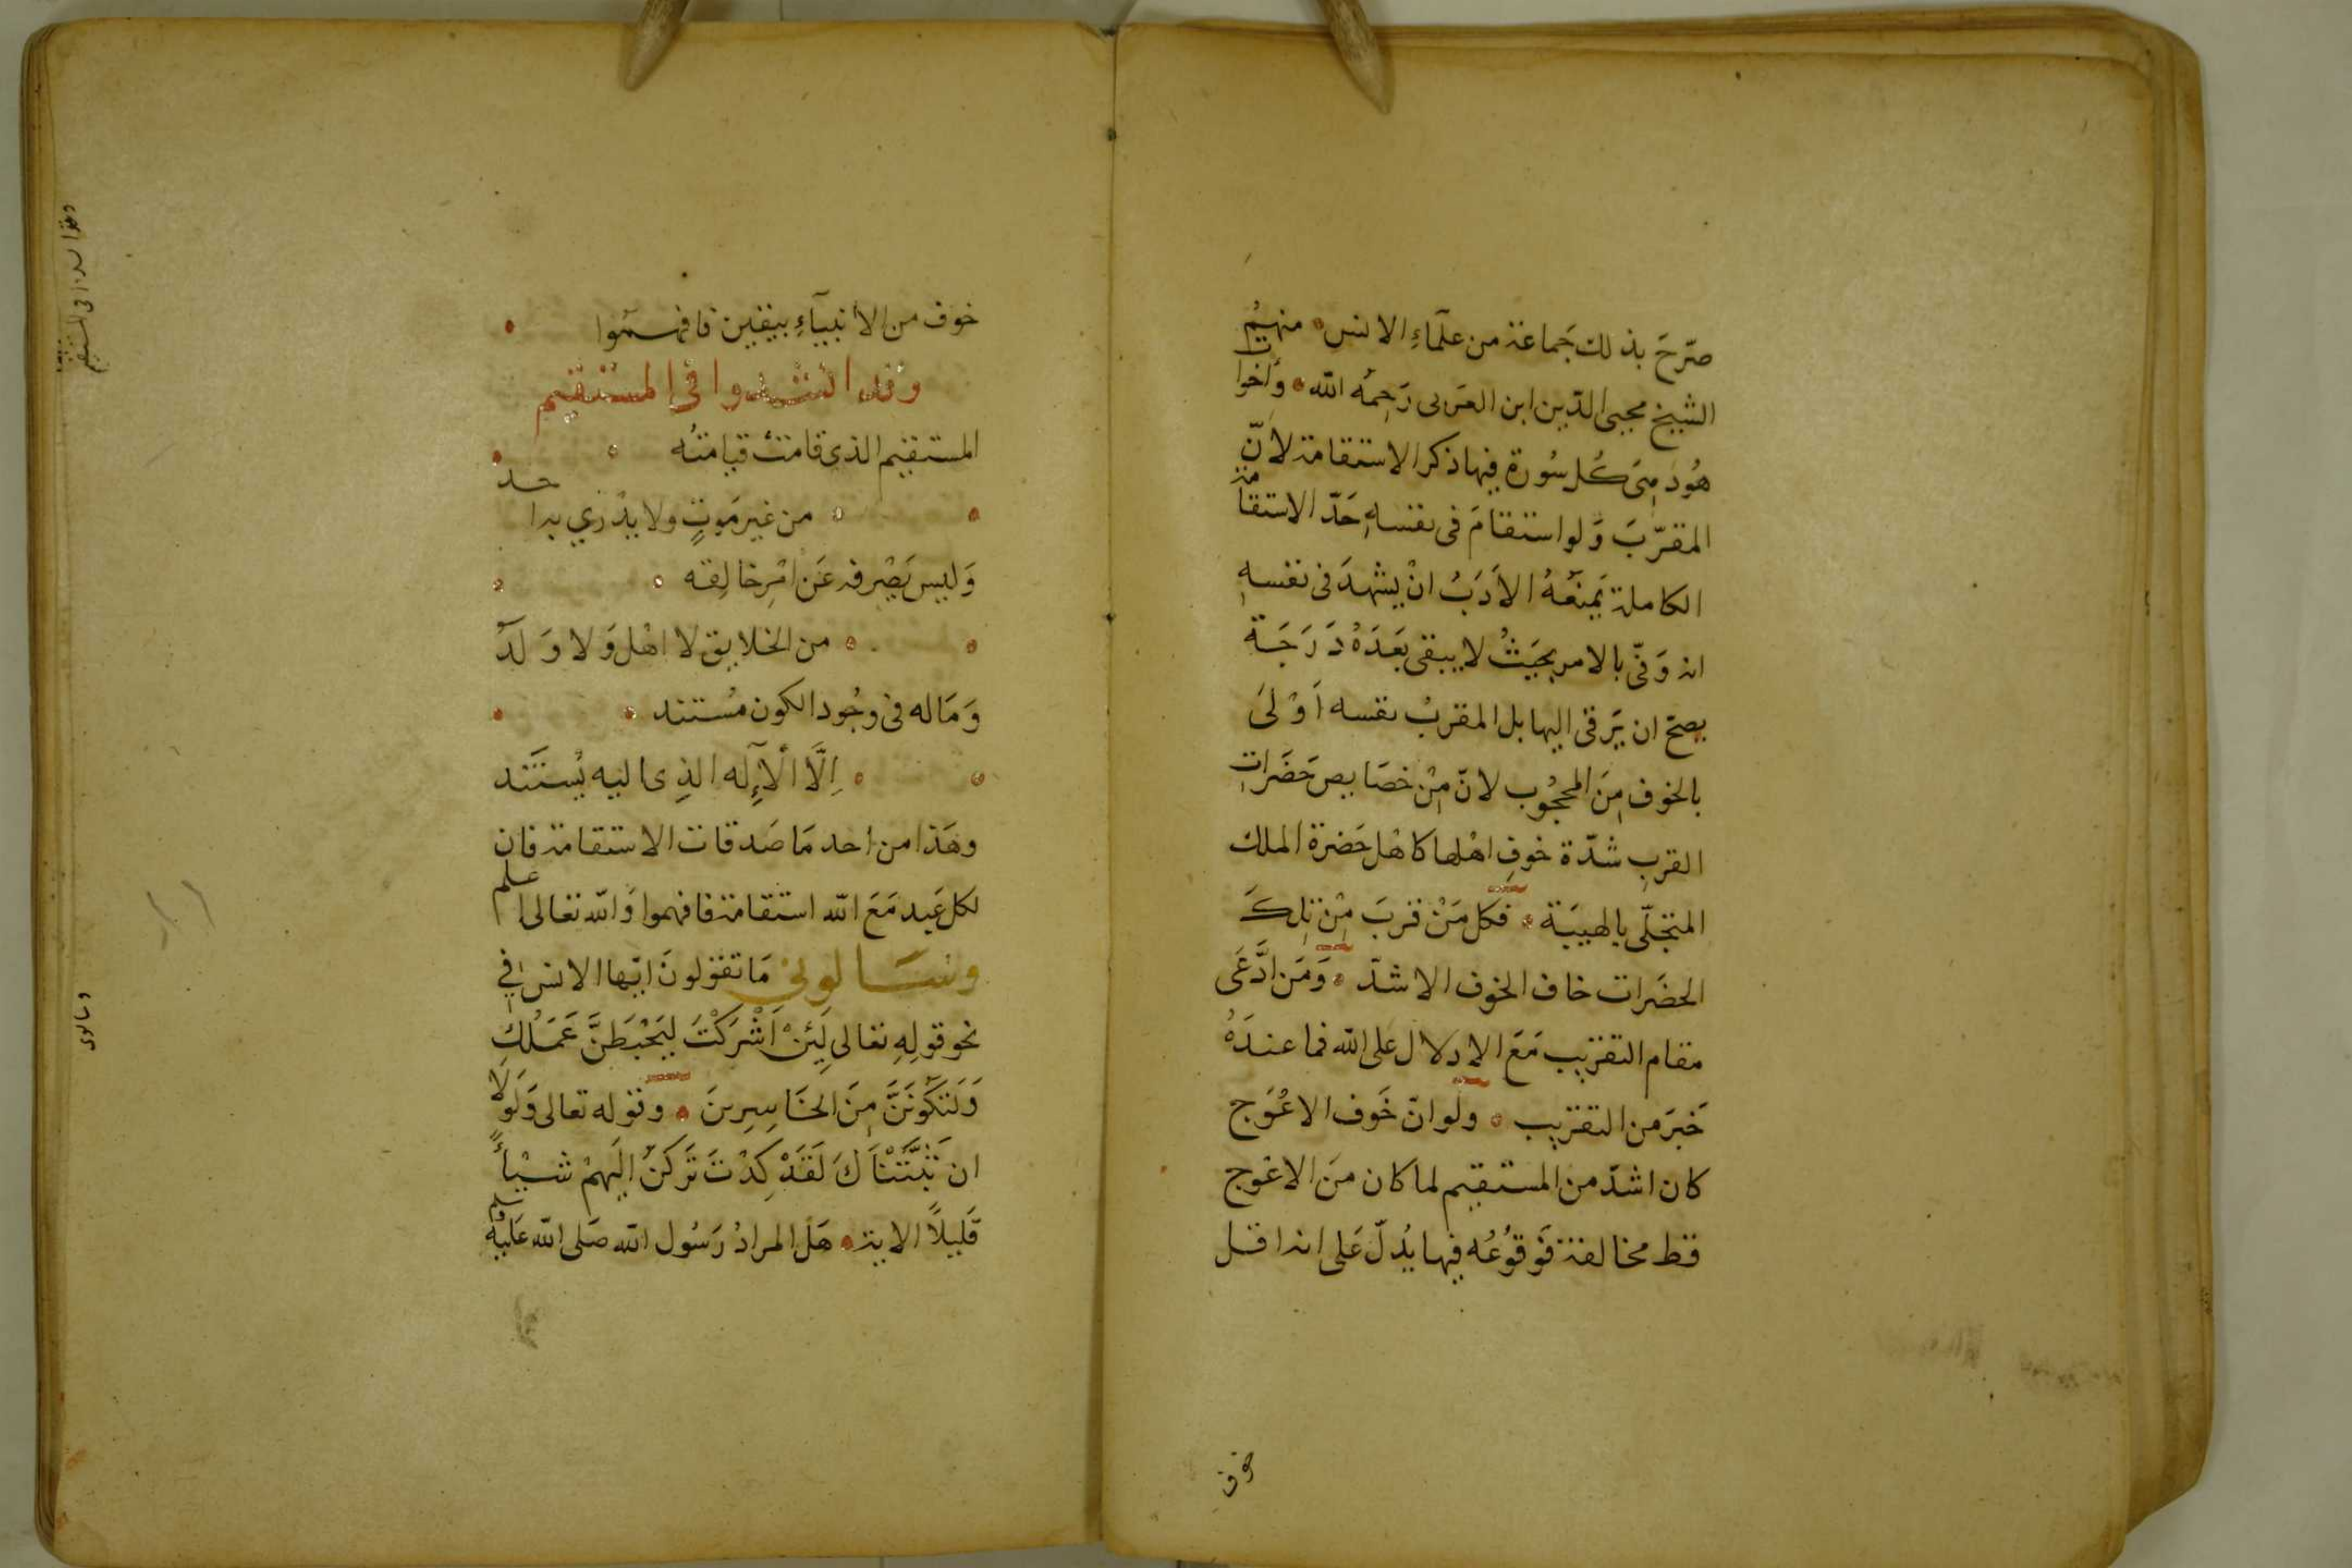 صرّحَ بذلك جَماعة من علمآءِ الانس منهُمُ
الشيخ محيى الدّين ابن العَربى رَحِمهُ الله وَأخواتُ
هُود مِىَ كُل سُورة فيها ذكر الاستقامة لانّ
المقرّبَ وَلو استقامَ فى نفسهِ حَدّ الاستقامة
الكاملة يَمنعُهُ الأدَبُ انْ يشهدَ فى نفسهِ
انه وَفّى بالامر بحيَثُ لا يبقى بَعَدَهُ دَرَجَة
يصحّ ان يَرقى اليها بل المقربُ نفسه أوْلىَ
بالخوف مِنَ المحجُوب لانّ مِنْ خصَايص حَضَراتِ
القربِ شدّة خوفِ اهْلها كاهْل حَضرة الملك
المتجلّى بالهيبَة فكل مَنْ قربَ مِنْ تِلكَ
الحضَرات خاف الخوف الاشدّ وَمَن ادَّعَى
مقام التقريب مَعَ الادلال على الله فما عندَهُ
خَبرَ من التقريب ولو انّ خَوف الاعْوَج
كان اشدّ من المستقيم لما كان مِنَ الاعْوج
قط مخالفة فوَقوُعُه فيها يُدلّ عَلى انه اقل
خوف
خوف من الانبيآءِ بيقين فافهمُوا
وقد انشدوا فى المستقيم
المستقيم الذى قامتْ قيامتُه
من غير مَوتٍ ولا يدْرِي به احد
وَليس يَصْرفه عَن امْرِ خالِقه
من الخلايق لا اهْل وَلا وَلَدُ
وَمَا له فى وجُود الكون مُستند
اِلَّا الْاِلٰه الذِى اليه يُستَند
وهَذا من احد مَا صَدقات الاستقامة فان
لكل عَبد مَعَ الله استقامة فافهموا وَالله تعالى اعلم
وسَالونى مَا تقولونَ ايّها الانس في
نحو قولِهِ تعالى لَئِنْ اَشْرَكْتَ لَيَحْبَطَنَّ عَمَلُكَ
وَلَتَكُونَنَّ مِنَ الخَاسِرِينَ وقوله تعالى وَلَولَا
ان ثبَّتْنَاكَ لَقَدْ كِدْتَ تَركَنُ الَيهِمْ شَيْأً
قَليلاً الاية هَل المرادُ رَسُول الله صَلى الله عَليهْ وسلم
وقد انشدوا فى المستقيم
وسالونى